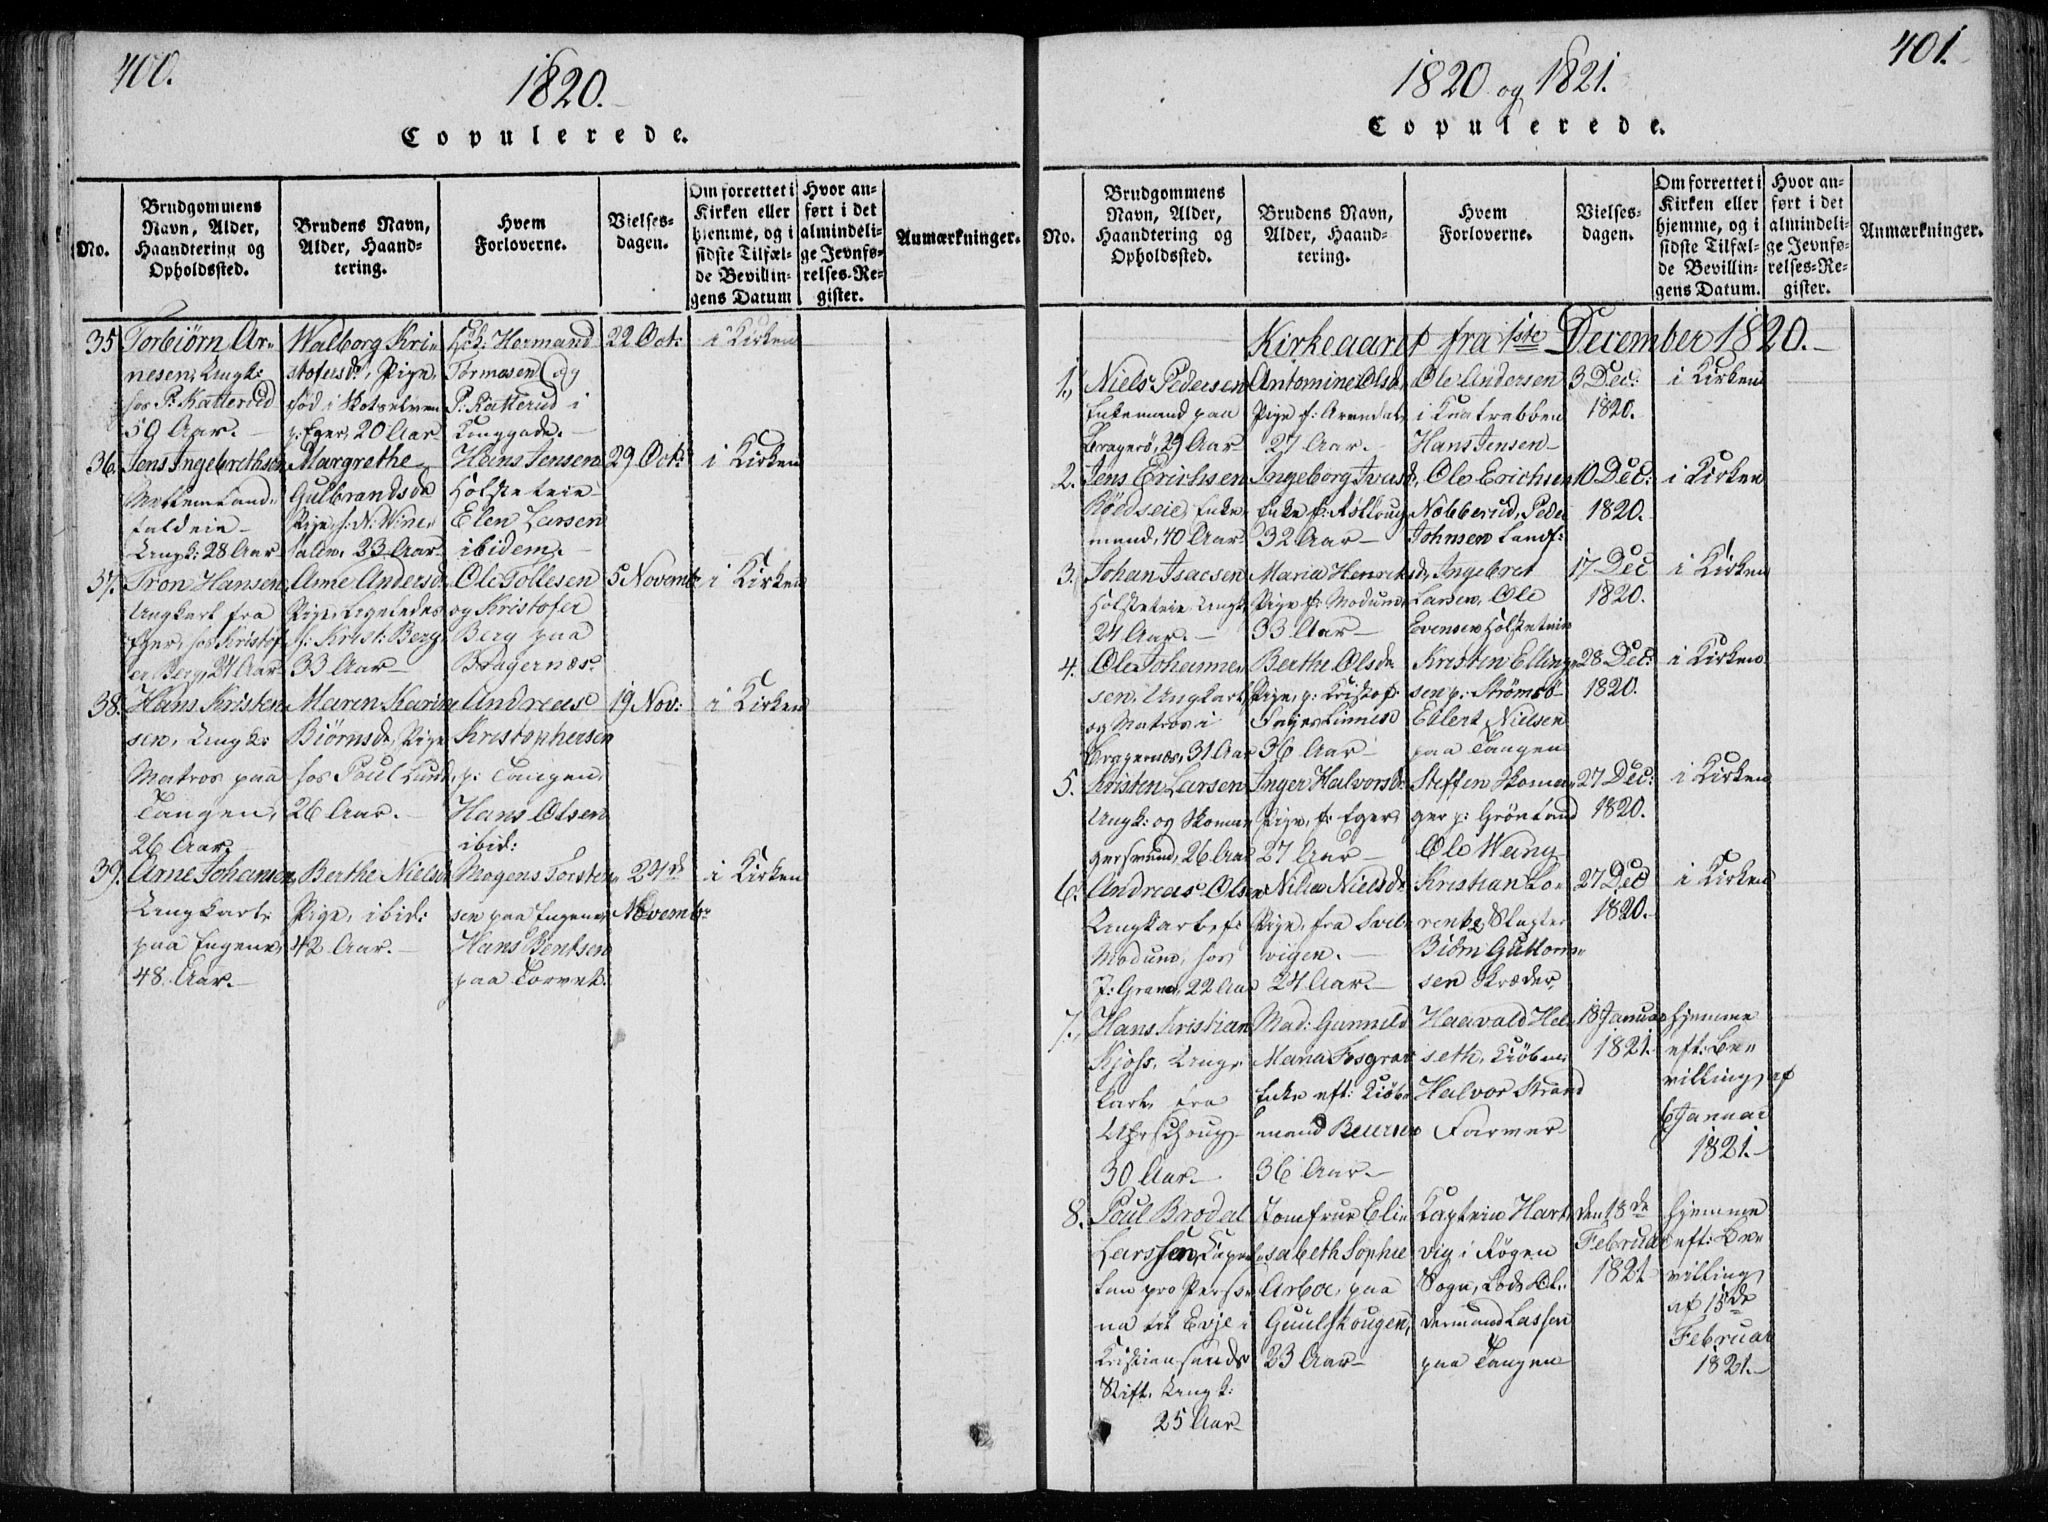 400.
1820.
Copulerede.
No.
Brudgommens
Navn, Alder,
Haandtering og
Opholdssted.
Brudens Navn,
Alder, Haand-
tering.
Hvem
Forloverne.
Vielses-
dagen.
Om forrettet i
Kirken eller
hjemme, og i
sidste Tilfæl-
de Bevillin-
gens Datum
Hvor an-
ført i det
almindeli-
ge Jevnfø-
relses-Re-
gister.
Anmærkninger.
35.
Torbiørn Ar-
nesen, Ungk:
hos P: Katterud
59 Aar.
Walborg Kri-
stofersdr, Pige,
fød i Skotselven
p: Eger, 20 Aar
Hormand
Tormosen og
P: Katterud i
Konggade.
22 Oct:
i Kirken
36.
Jens Ingebrethsen
28 Aar
Margrethe
Gulbrandsdr
Pige, f: N:
23 Aar
Hans Jensen
Holsteteie
Elen Larsen
ibidem.
29 Oct:
i Kirken
37.
Tron Hansen
Ungkarl fra
Eger, hos Kristof-
er Berg, 24 Aar
Anne Andersdr
Pige, ligeledes
h: Krist: Berg
33 Aar
Ole Tollesen
og Kristofer
Berg paa
Bragernæs.
5 Novembr
i Kirken
38.
Hans Kristen-
sen, Ungk:
Matros paa
Tangen,
26 Aar.
Maren Karine
Biørnsdr, Pige
hos Poul Lund,
26 Aar.
Andreas
Kristophersen
p: Tangen,
Hans Olsen
ibid:
19 Nov:
i Kirken
39.
Arne Johansen,
Ungkarl
paa Engene,
48 Aar.
Berthe Nielsdr
Pige, ibid:
42 Aar.
Mogens Torsten-
sen paa Engene,
Hans Bentsen
paa Torvet.
24de
Novembr
i Kirken
401.
1820 og 1821.
Copulerede.
No.
Brudgommens
Navn, Alder,
Haandtering og
Opholdssted.
Brudens Navn,
Alder, Haand-
tering.
Hvem
Forloverne.
Vielses-
dagen.
Om forrettet i
Kirken eller
hjemme, og i
sidste Tilfæl-
de Bevillin-
gens Datum.
Hvor an-
ført i det
almindeli-
ge Jevnfø-
relses-Re-
gister.
Anmærkninger.
Kirkeaaret fra 1ste December 1820.
1.
Niels Pedersen
Enkemand paa
Bragerø, 29 Aar
Antomine Olsdr
Pige f: Arendal,
27 Aar.
Ole Andersen
i Knatrabben
Hans Jensen
3 Dec:
1820.
i Kirken
2.
Jens Erichsen
Røedseie, Enke-
mand, 40 Aar
Ingeborg Ivarsdr,
Enke f:
32 Aar
Ole Erichsen
Nobberud, Peder
Johnsen Landf:
10 Dec:
1820.
i Kirken
3.
Johan Isacsen
Holsteteie Ungk,
24 Aar.
Maria Henriksdr,
Pige f: Modum,
33 Aar
Ingebret
Larsen, Ole
Evensen Holsteteie
17 Dec
1820.
i Kirken
4.
Ole Johanne-
sen, Ungkarl,
og Matros i
Bragernæs, 31 Aar
Berthe Olsdr
Pige, p: Kristof:
36 Aar
Kristen Elling-
sen p: Strømsø
Ehlert Nielsen
paa Tangen
28 Dec:
1820.
i Kirken
5.
Kristen Larsen
Ungk: og Skoma-
gersvend, 26 Aar
Inger Halvorsdr
Pige, f: Eger,
27 Aar
Steffen Skoma-
ger p: Grønland
Ole Wang
27 Dec:
1820.
i Kirken
6.
Andreas Olsen
Ungkarl f:
Modum, hos
J: Gram, 22 Aar
Nilia Nielsdr
Pige, fra Svel-
vigen.
24 Aar.
Kristian Lo-
rentz, Slagter
Biørn Guttorm-
sen Skræder,
27 Dec
1820.
i Kirken
7.
Hans Kristian
Kjøss, Ung-
karl, fra
30 Aar.
Mad: Gunnild
Maria Fosgrav
Enke eft: Kiøb-
mand
36 Aar.
Haavald Hel-
seth, Kiøbm:
Halvor Strand
Farver
18 Januar
1821.
hjemme
eft: Be-
villing, af
6 Januar
1821.
8.
Poul Brodal
Larssen, Capel-
lan pro Perso-
na til Evje i
Kristiansands
Stift, Ungk:
25 Aar
Jomfrue Eli-
sabeth Sophie
Arboe, paa
Guulskougen,
23 Aar
Captein Hart-
vig i Røgen
Sogn, Lods Ol-
dermand Lassen
paa Tangen
den 18de
Februar
1821
hjemme
eft: Be-
villing
af 15de
Februar
1821.